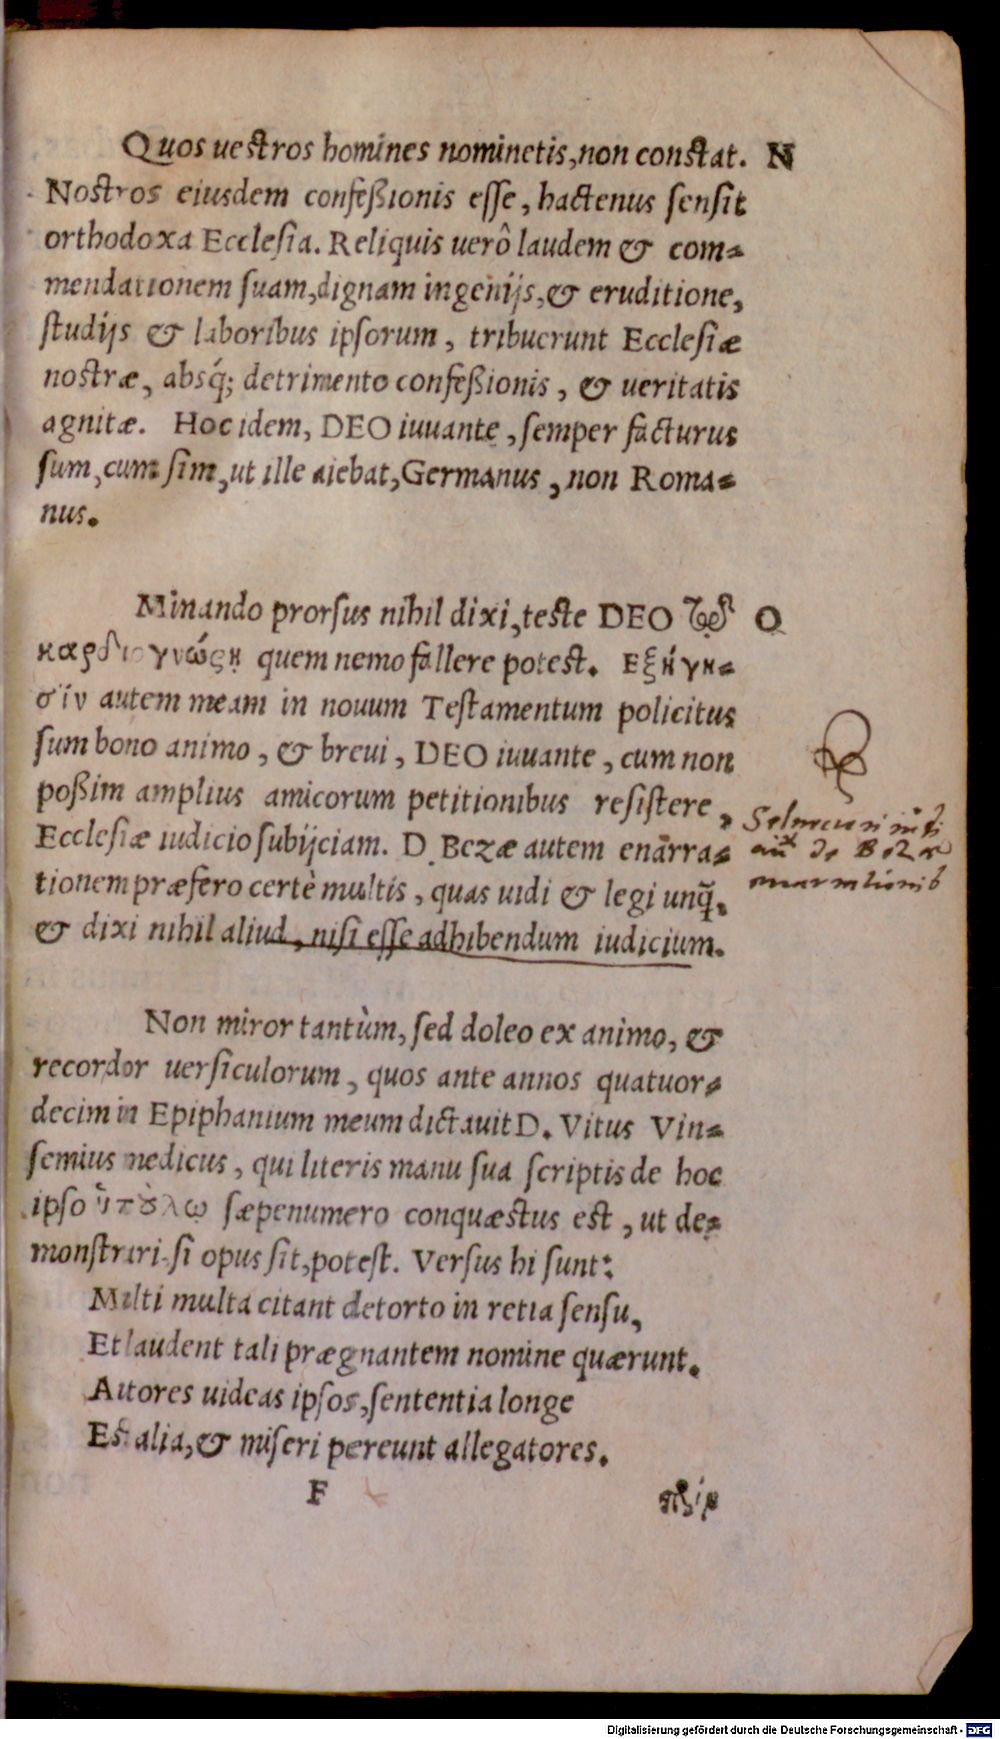 Quos uestros homines nominetis, non constat. N
Nostros eiusdem confeßionis esse, hactenus sensit
orthodoxa Ecclesia. Reliquis uerô laudem & com-
mendationem suam, dignam ingenijs, & eruditione,
studijs & laboribus ipsorum, tribuerunt Ecclesiæ
nostræ, absq́; detrimento confeßionis, & ueritatis
agnitæ. Hoc idem, DEO iuuante, semper facturus
sum, cum sim, ut ille aiebat, Germanus, non Roma-
nus.
Minando prorsus nihil dixi, teste DEO τῷ O
καρδιογνώςῃ quem nemo fallere potest. Εξήγη-
σίν autem meam in nouum Testamentum policitus
sum bono animo, & breui, DEO iuuante, cum non
poßim amplius amicorum petitionibus resistere,
Ecclesiæ iudicio subijciam. D. Bezæ autem enārra-
tionem præfero certè multis, quas uidi & legi unq̃,
& dixi nihil aliud, nisi esse adhibendum iudicium.
de Beza
Non miror tantùm, sed doleo ex animo, &
recordor uersiculorum, quos ante annos quatuor-
decim in Epiphanium meum dictauit D. Vitus Vin-
semius medicus, qui literis manu sua scriptis de hoc
ipso ὑπȣ́λῳ sæpenumero conquæstus est, ut de-
monstrari si opus sit, potest. Versus hi sunt:
Multi multa citant detorto in retia sensu,
Et laudent tali prægnantem nomine quærunt.
Autores uideas ipsos, sententia longe
Est alia, & miseri pereunt allegatores.
F
Digitalisierung gefördert durch die Deutsche Forschungsgemeinschaft - DFG